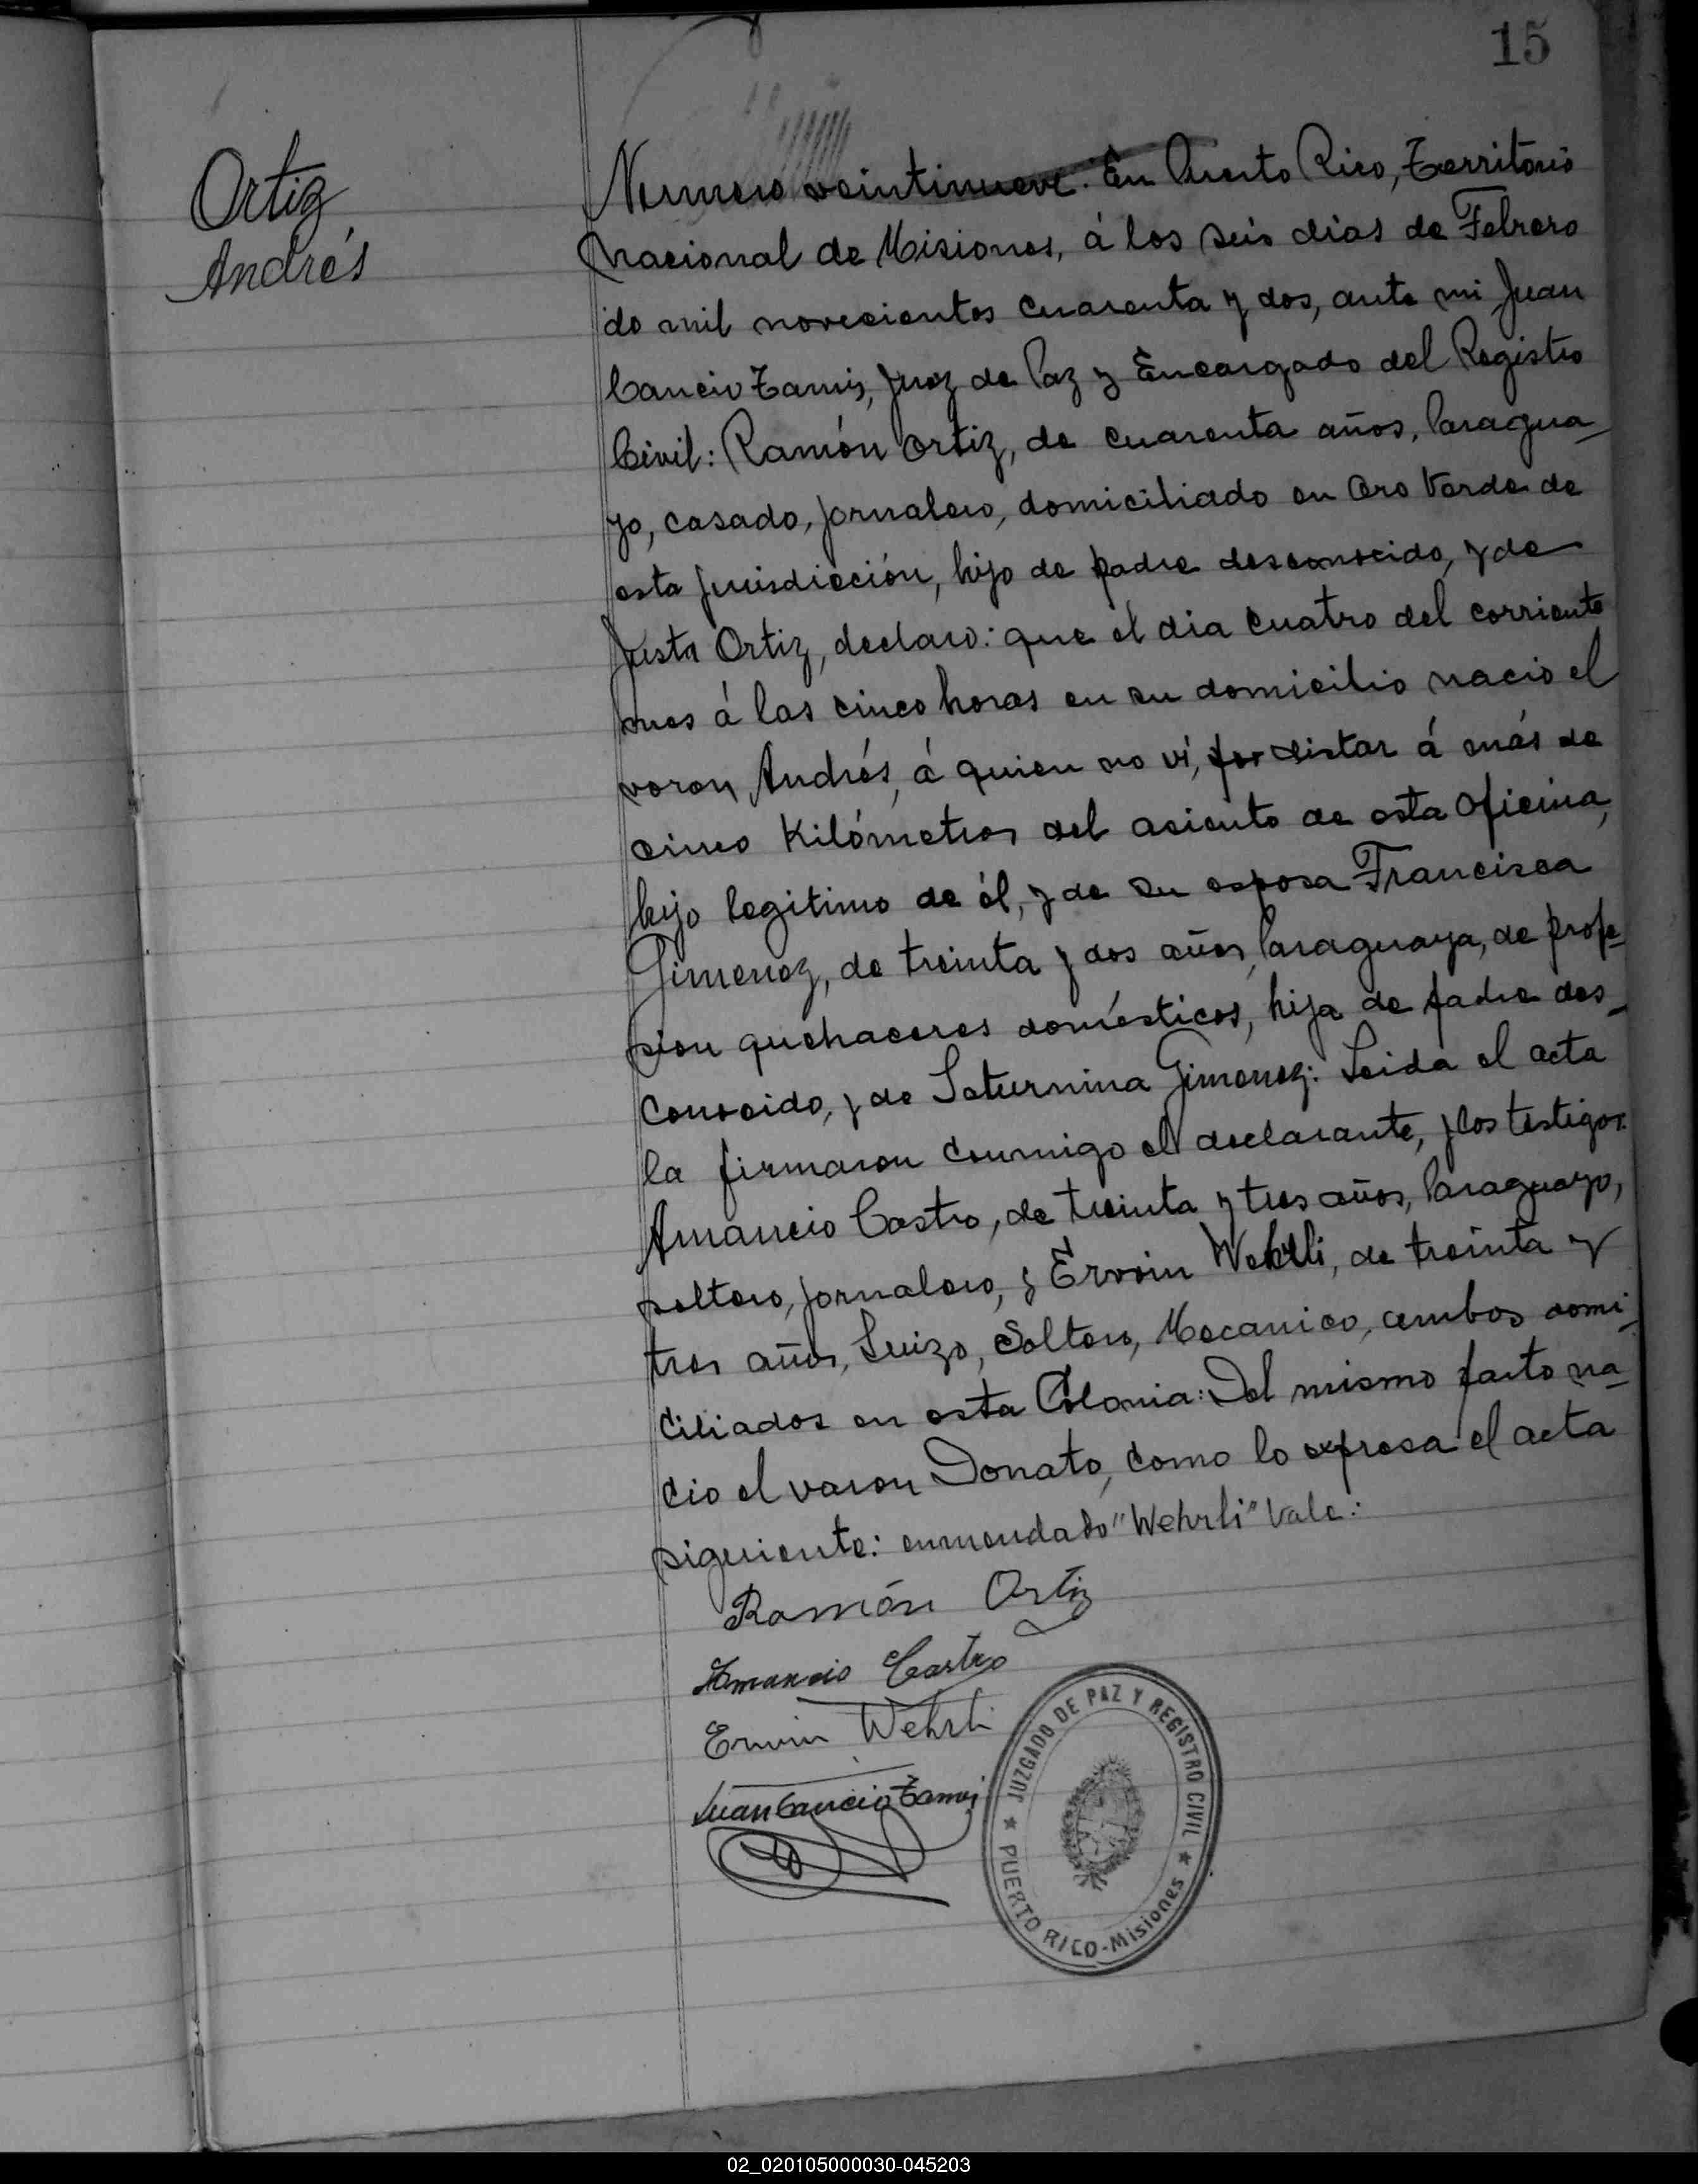 15
Ortiz
Andrés
Numero veintinueve. En Puerto Rico, Territorio
Nacional de Misiones, á los seis dias de Febrero
de mil novecientos cuarenta y dos, ante mi Juan
Cancio Tamis, Juez de Paz y Encargado del Registro
Civil: Ramón Ortiz, de cuarenta años, Paragua-
yo, casado, jornalero, domiciliado en Oro Verde de
esta jurisdicción, hijo de padre desconocido, y de
Justa Ortiz, declaró: que el dia cuatro del corriente
mes á las cinco horas en su domicilio nació el
varon Andrés, á quien no ví, por distar á más de
cinco Kilómetros del asiento de esta oficina,
hijo legitimo de él, y de su esposa Francisca
Gimenez, de treinta y dos años, Paraguaya, de profe-
sion quehaceres domésticos, hija de padre des-
conocido, y de Saturnina Gimenez: Leida el acta
la firmaron conmigo el declarante, y los testigos:
Amancio Castro, de treinta y tres años, Paraguayo,
soltero, jornalero, y Erwin Wehrli, de treinta y
tres años, Suizo, Soltero, Mecanico, ambos domi-
ciliados en esta Colonia: Del mismo parto na-
cio el varon Donato, como lo expresa el acta
siguiente: enmendado "Wehrli" Vale:
Ramón Ortiz
Amancio Castro
Erwin Wehrli
Juan Cancio Tamis
JUZGADO DE PAZ Y REGISTRO CIVIL
PUERTO RICO-Misiones
02_020105000030-045203